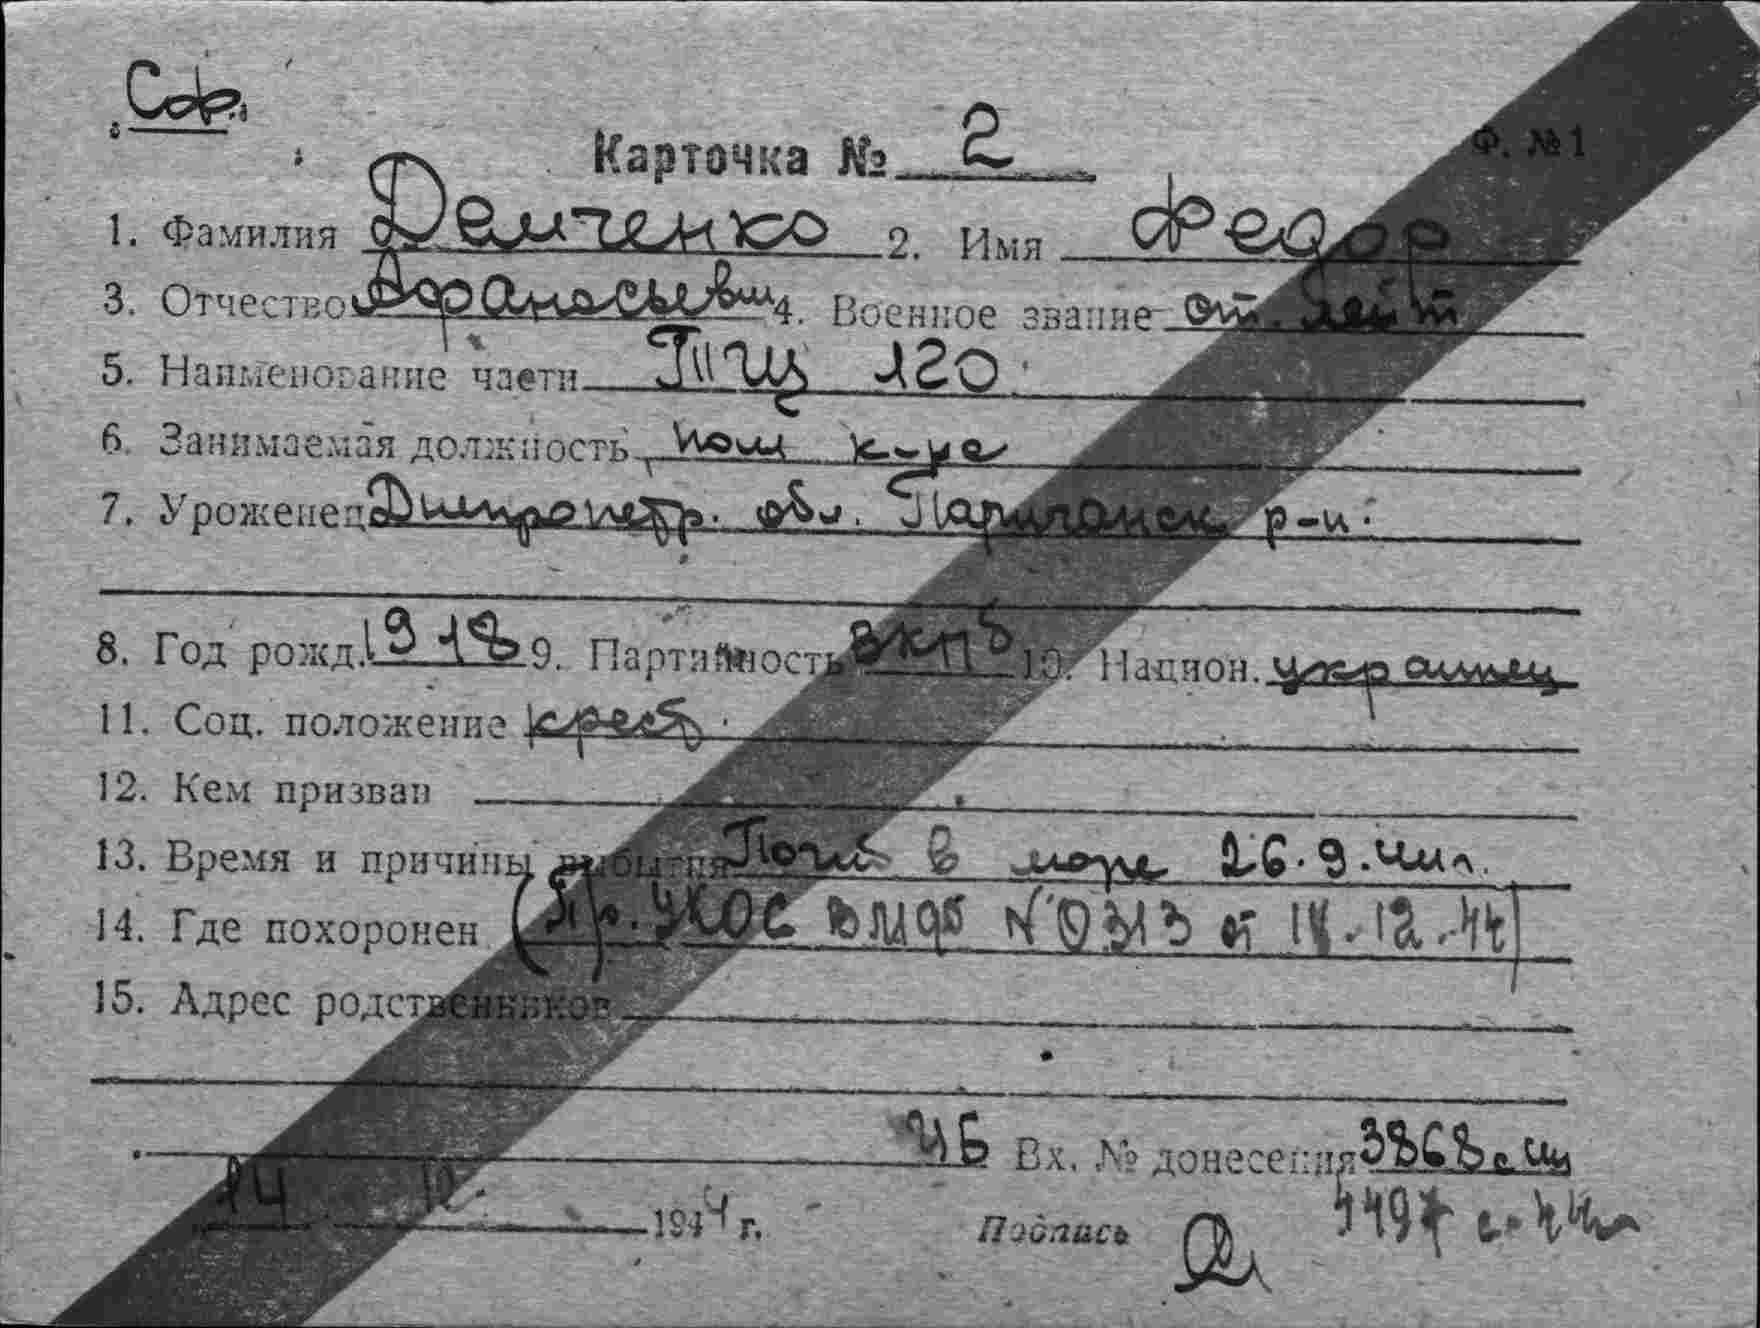 Соф.
Карточка № 2 Ф. №1
1. Фамилия Демченко 2. Имя Федор
3. Отчество Афанасьевич 4. Военное звание ст. лейт
5. Наименование части ТЩ 120
6. Занимаемая должность пом к-ра
7. Уроженец Днепропетр. обл. Царичанск р-н.
8. Год рожд. 1918 9. Партийность ВКПб 10. Национ. украинец
11. Соц. положение крест.
12. Кем призван
13. Время и причины выбытия Погиб в море 26.9.44г.
14. Где похоронен (Пр. УКОС ВМФ №0313 от 14.12.44)
15. Адрес родственников
ЧБ Вх. № донесения 3868с
14 12. 1944 г. Подпись 4497